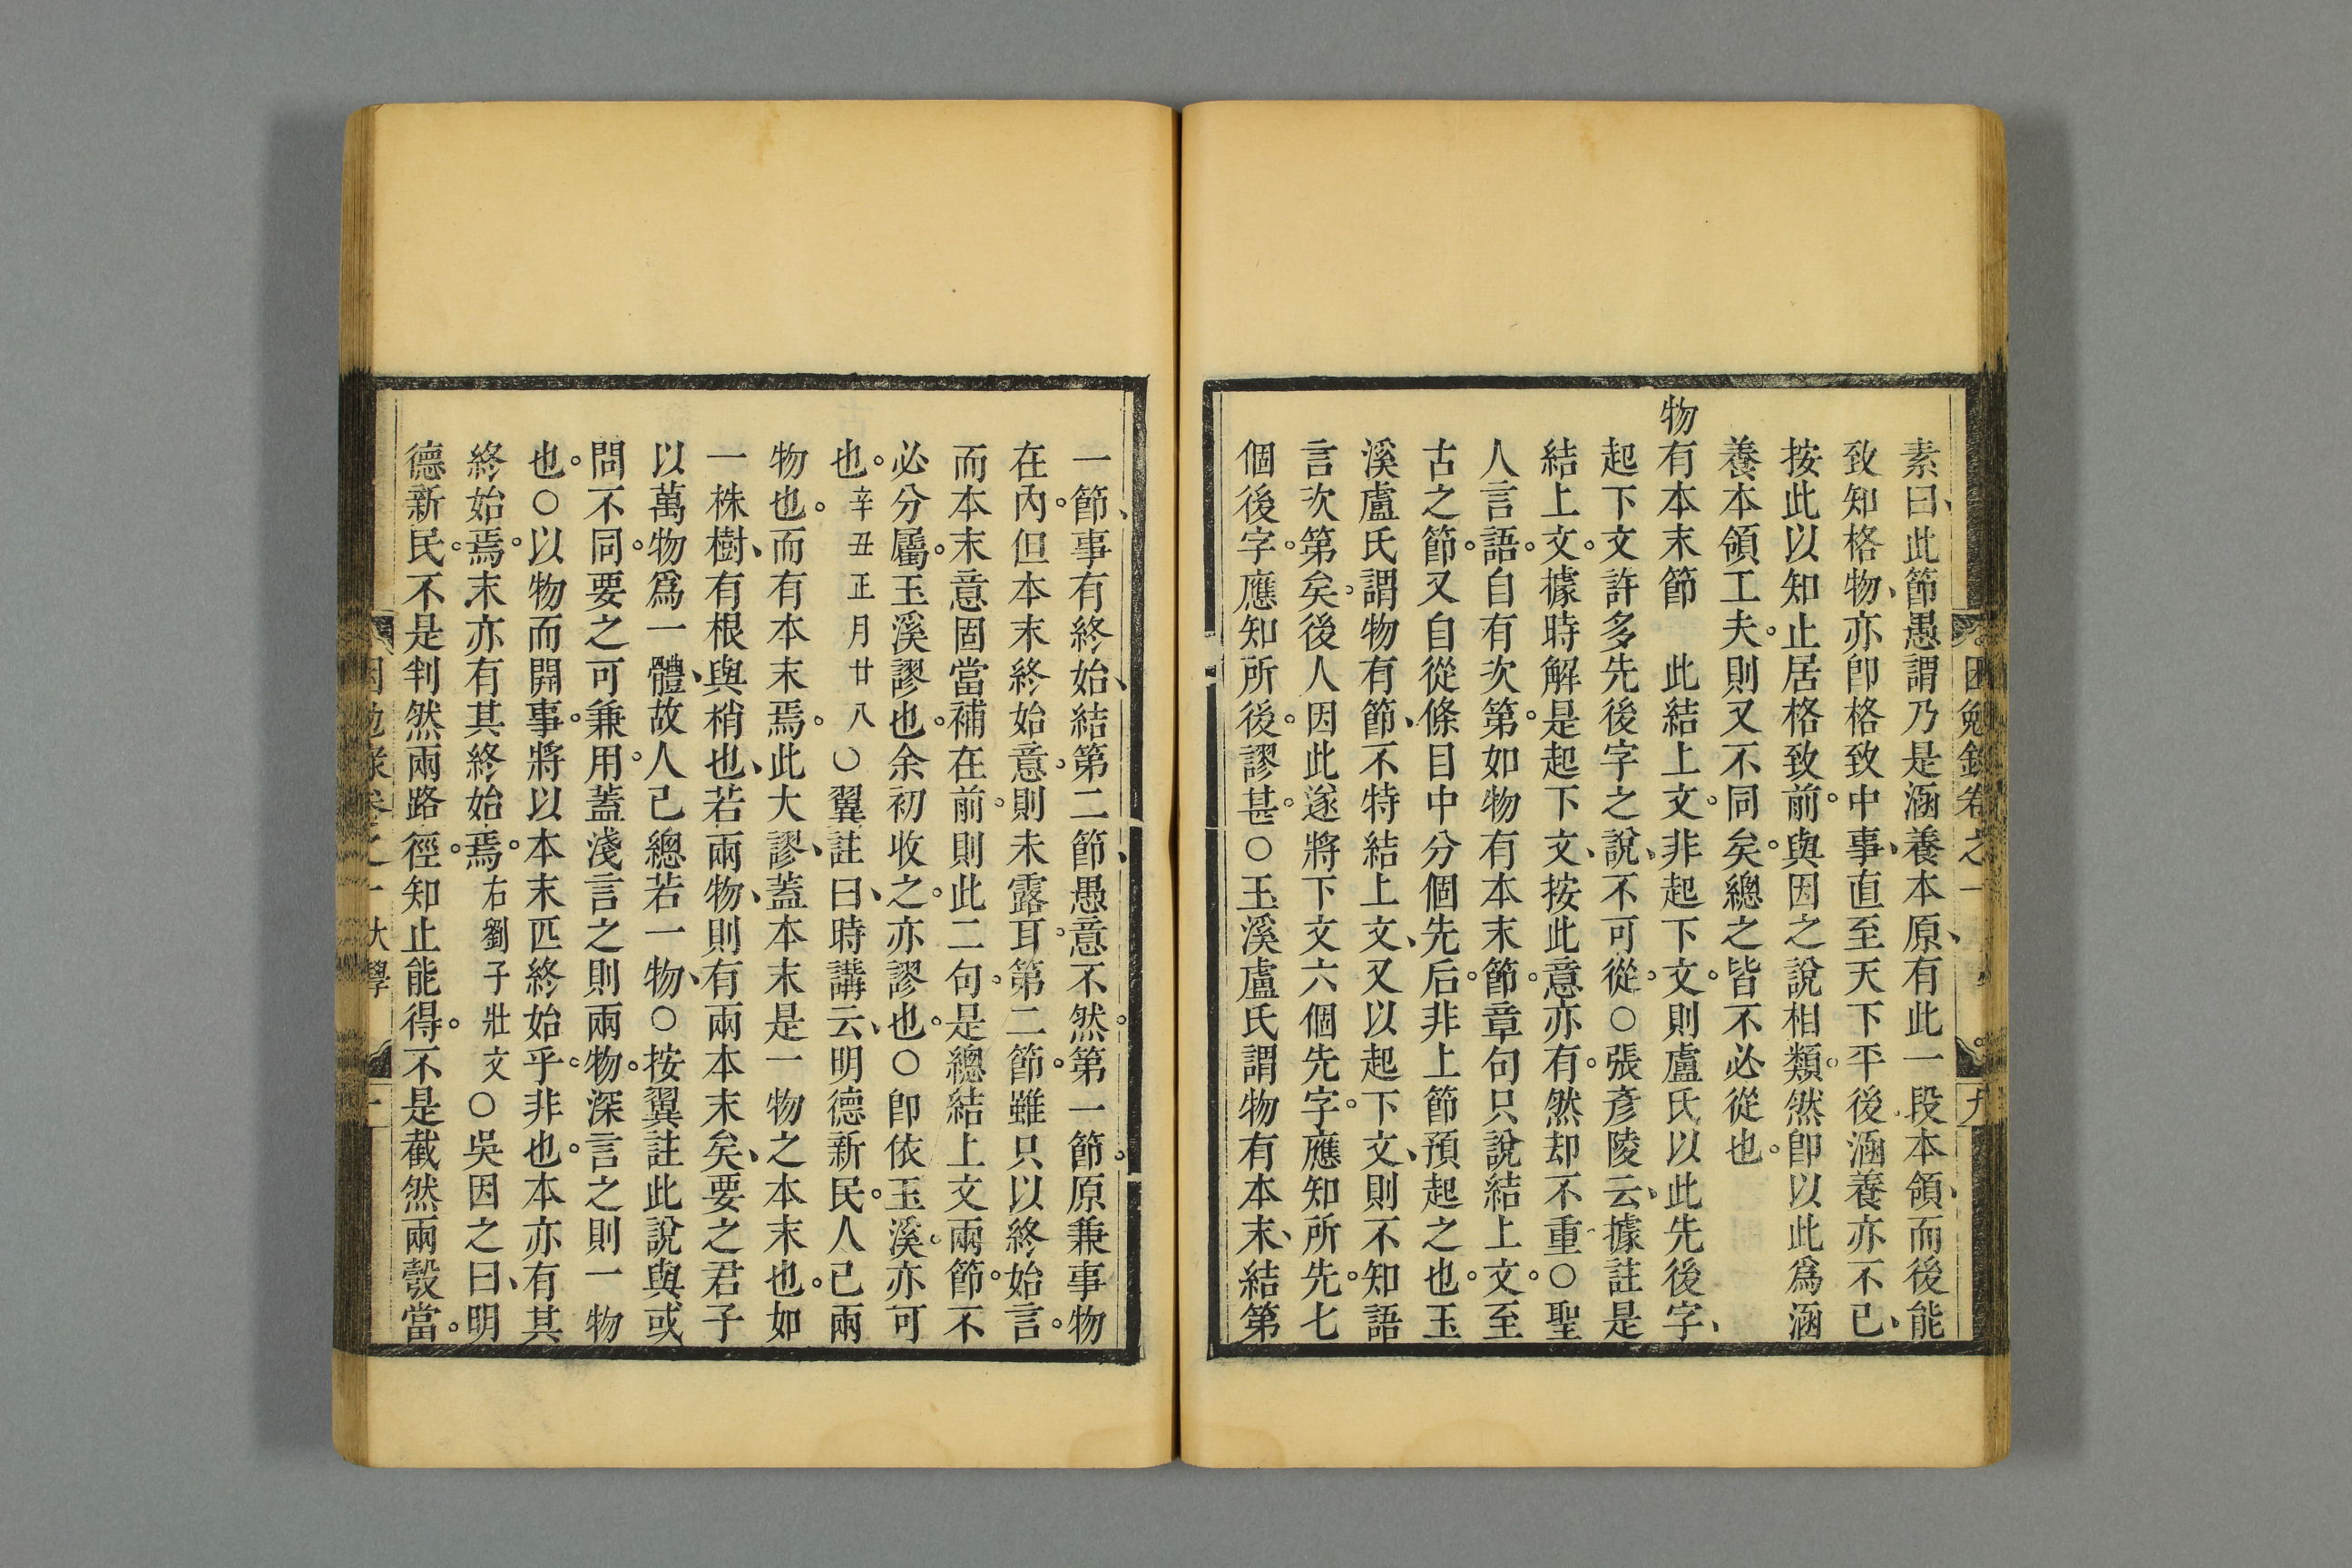 素曰、此節愚謂乃是涵養本原、有此一段本領、而後能
致知格物、亦卽格致中事、直至天下平後涵養亦不已、
按此以知止居格致前。與因之說相類。然卽以此爲涵
養本領工夫。則又不同矣。總之皆不必從也。
物有本末節　此結上文。非起下文。則盧氏以此先後字、
起下文許多先後字之說、不可從。○張彥陵云、據註是
結上文。據時解是起下文、按此意亦有。然却不重○聖
人言語。自有次第。如物有本末節。章句只說結上文。至
古之節。又自從條目中分個先后。非上節預起之也。玉
溪盧氏謂物有節、不特結上文、又以起下文、則不知語
言次第矣。後人因此遂將下文六個先字。應知所先。七
個後字。應知所後。謬甚。○玉溪盧氏謂物有本末、結第
一節、事有終始、結第二節、愚意不然。第一節。原兼事物
在內。但本末終始意。則未露耳。第二節。雖只以終始言。
而本末意固當補在前。則此二句。是總結上文兩節。不
必分屬。玉溪謬也。余初收之。亦謬也。○卽依玉溪。亦可
也。辛丑正月廿八○翼註曰、時講云、明德新民。人己兩
物也。而有本末焉。此大謬、蓋本末是一物之本末也。如
一株樹、有根與梢也、若兩物、則有兩本末矣、要之君子
以萬物爲一體、故人己總若一物、○按翼註此說與或
問不同。要之可兼用。蓋淺言之則兩物。深言之則一物
也。○以物而開事。將以本末匹終始乎。非也。本亦有其
終始焉。末亦有其終始焉。右劉子壯文○吳因之曰、明
德新民。不是判然兩路徑。知止能得。不是截然兩彀當。
困勉錄卷之一
九
大學